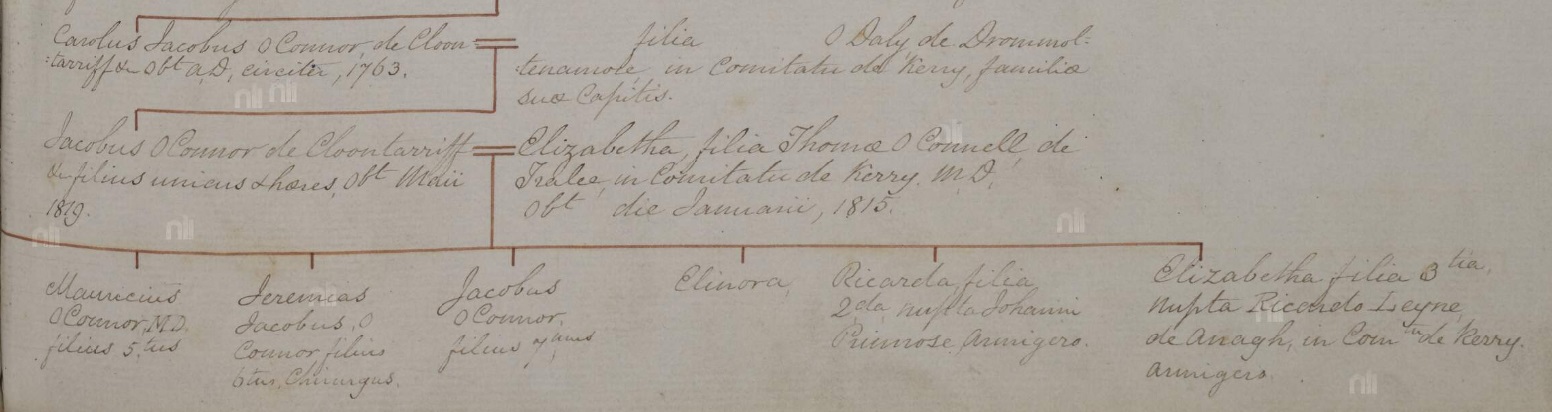 Carolus Jacobus O Connor, de Cloon=
=tarriff &c Obt A.D, circiter, 1763.
filia O Daly de Drommol-
-tenamore, in Comitatu de Kerry, familiæ
suæ Capitis.
Jacobus O Connor de Cloontarriff
&c filius unicus & hæres, Obt Maii
1819.
Elizabetha, filia Thomæ O Connell, de
Tralee, in Comitatu de Kerry. M.D.
Obt die Januarii, 1815.
Mauricius
O Connor, M.D.
filius 5.tus
Jeremias
Jacobus, O
Connor, filius
6tus, Chirurgus.
Jacobus
O Connor,
filius 7imus
Elinora,
Ricarda, filia
2da, nupta Johanni
Primrose, Armigero.
Elizabetha filia 3tia,
nupta Ricardo Leyne,
de Anagh, in Comtu de Kerry.
Armigero.